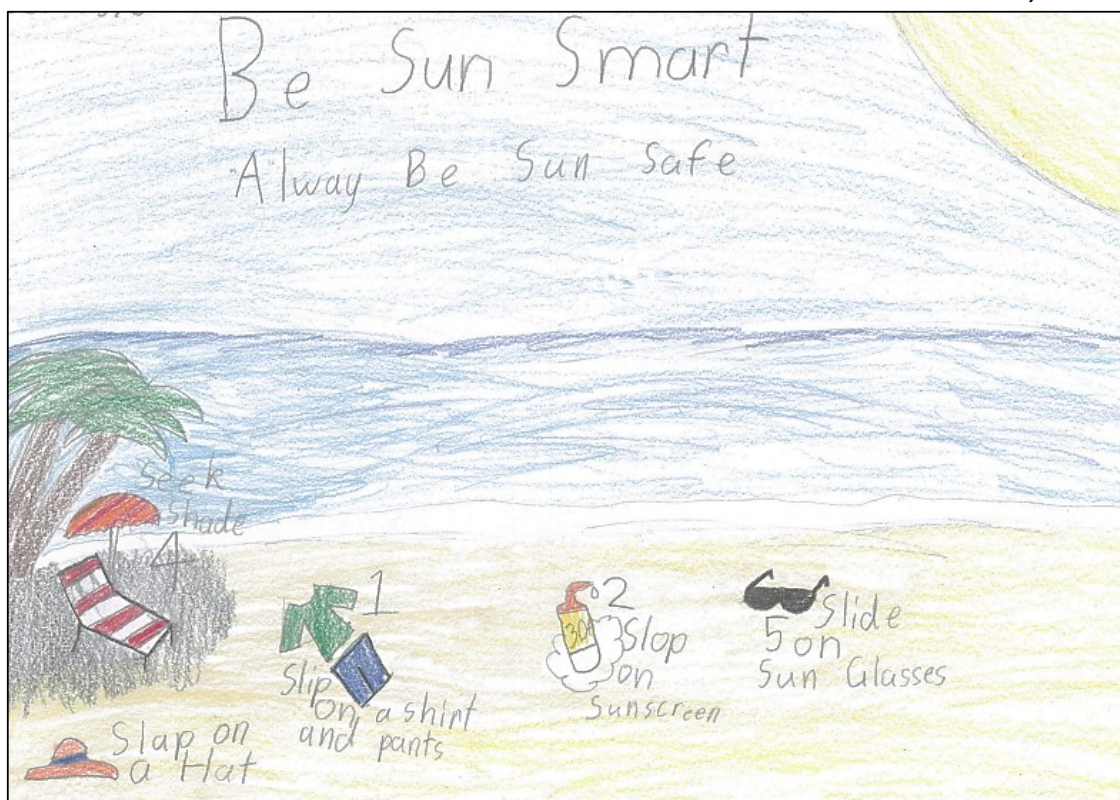 Be Sun Smart
Alway Be Sun Safe
Seek
Shade
4
1
Slip
on a shirt
and pants
2
30
Slop
on
Sunscreen
Slide
5 on
Sun Glasses
Slap on
a Hat